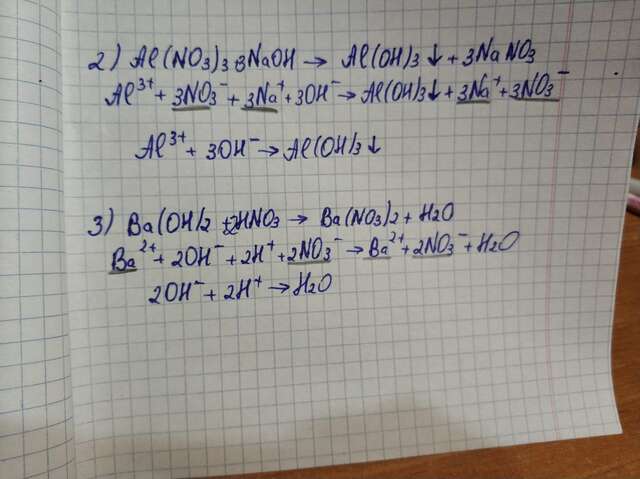 2) Al(NO3)3 3NaOH → Al(OH)3↓ + 3NaNO3
Al³⁺ + 3NO3⁻ + 3Na⁺ + 3OH⁻ → Al(OH)3↓ + 3Na⁺ + 3NO3⁻
Al³⁺ + 3OH⁻ → Al(OH)3↓
3) Ba(OH)2 + 2HNO3 → Ba(NO3)2 + H2O
Ba²⁺ + 2OH⁻ + 2H⁺ + 2NO3⁻ → Ba²⁺ + 2NO3⁻ + H2O
2OH⁻ + 2H⁺ → H2O